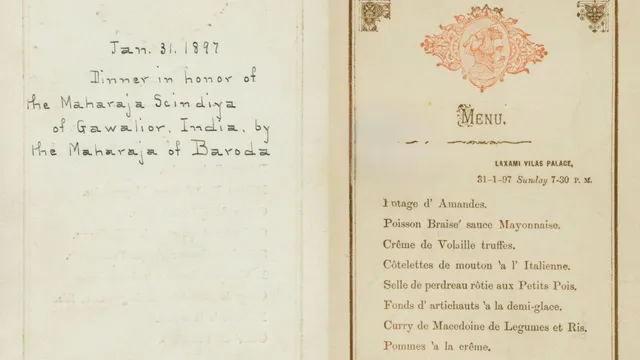 Jan. 31. 1897
Dinner in honor of
the Maharaja Scindiya
of Gawalior, India, by
the Maharaja of Baroda
MENU.
LAXAMI VILAS PALACE,
31-1-97 Sunday 7-30 P. M.
Potage d' Amandes.
Poisson Braise' sauce Mayonnaise.
Crême de Volaille truffes.
Côtelettes de mouton 'a l' Italienne.
Selle de perdreau rôtie aux Petits Pois.
Fonds d' artichauts 'a la demi-glace.
Curry de Macedoine de Legumes et Ris.
Pommes 'a la crême.